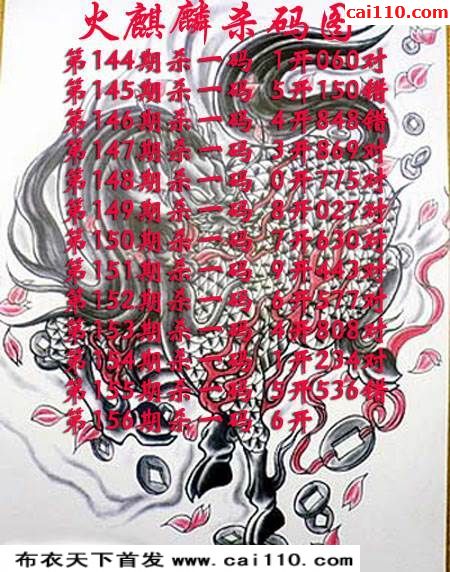 cai110.com
火麒麟杀码图
第144期杀一码 1开060对
第145期杀一码 5开150错
第146期杀一码 4开848错
第147期杀一码 3开869对
第148期杀一码 0开775对
第149期杀一码 8开027对
第150期杀一码 7开630对
第151期杀一码 9开443对
第152期杀一码 6开577对
第153期杀一码 4开808对
第154期杀一码 1开234对
第155期杀一码 5开536错
第156期杀一码 6开
布衣天下首发 www.cai110.com